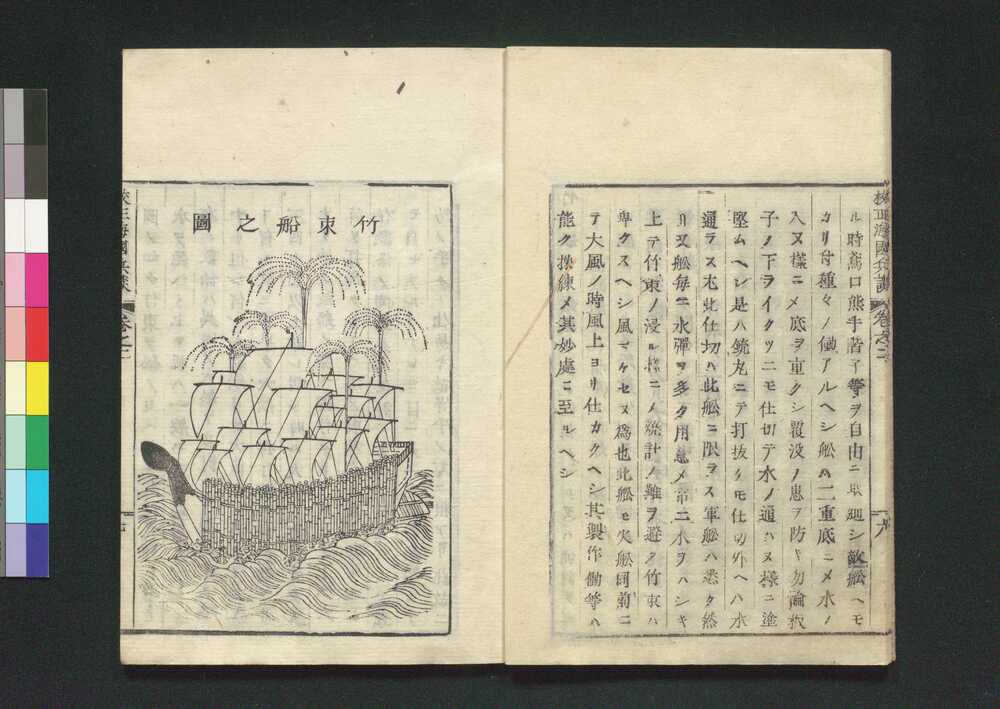 ル時鳶口熊手苔了等ヲ自由ニ取廻シ敵舩ヘモ
カリ付種々ノ働アルヘシ舩ハ二重底ニメ水ノ
入ヌ樣ニメ底ヲ重クシ覆没ノ患ヲ防キ勿論扠
子ノ下ヲイクツニモ仕切テ水ノ通ハヌ樣ニ塗
堅ムヘシ是ハ銃丸ニテ打抜クモ仕切外ヘハ水
通ラス尤此仕切ハ此舩ニ限ラス軍舩ハ悉ク然
リ又舩毎ニ水彈ヲ多ク用意メ常ニ水ヲハシキ
上テ竹束ノ浸ル樣ニメ燒討ノ難ヲ避ク竹束ハ
卑クスヘシ風ニマケセヌ為也此舩モ火舩同前ニ
テ大風ノ時風上ヨリ仕カクヘシ其製作働等ハ
能ク操練メ其妙處ニ至ルヘシ
校正海國兵談
卷之二
竹束船之圖
校正海國兵談
卷之二